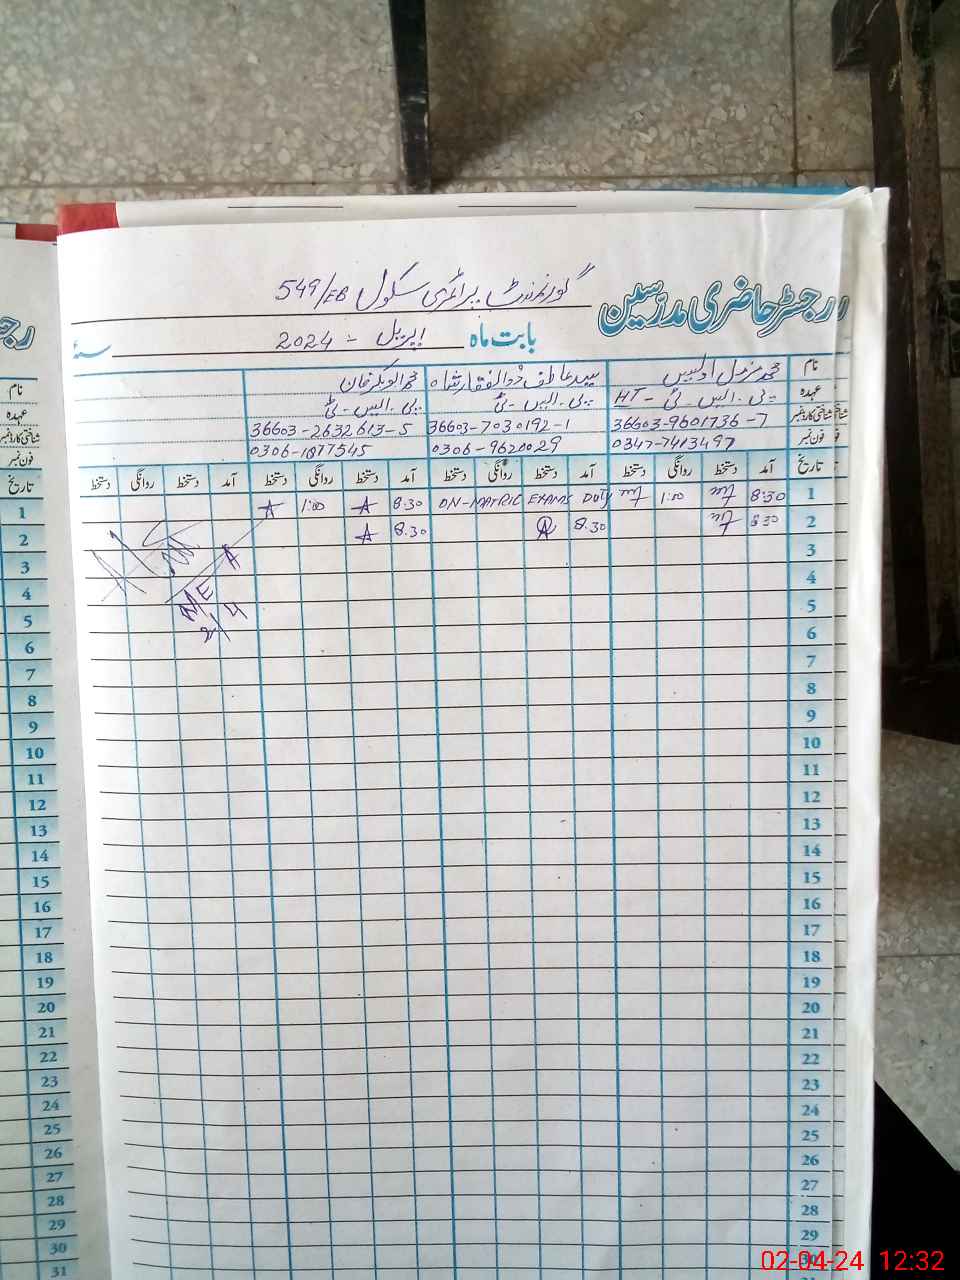 رجسٹر حاضری مدرسین گورنمنٹ پرائمری سکول 549/EB
بابت ماہ اپریل - 2024 سنہ
نام محمد مزمل اویس سید عاطف ذوالفقار شاہ محمد ابوبکر خان
عہدہ پی۔ایس۔ٹی - HT پی۔ایس۔ٹی پی۔ایس۔ٹی
شناختی کارڈ نمبر 36603-9601736-7 36603-7030192-1 36603-2632613-5
فون نمبر 0347-7413497 0306-9620029 0306-1077545
تاریخ آمد دستخط روانگی دستخط آمد دستخط روانگی دستخط آمد دستخط روانگی دستخط آمد دستخط روانگی دستخط
1 8:30 1:00 ON-MATRIC EXAMS DUTY 8:30 1:00
2 8:30 8:30 8:30
3
4
MEA
5
2/4
6
7
8
9
10
11
12
13
14
15
16
17
18
19
20
21
22
23
24
25
26
27
28
29
30
رجـ
نام
عہدہ
شناختی کارڈ نمبر
فون نمبر
تاریخ
1
2
3
4
5
6
7
8
9
10
11
12
13
14
15
16
17
18
19
20
21
22
23
24
25
26
27
28
29
30
31
02-04-24 12:32